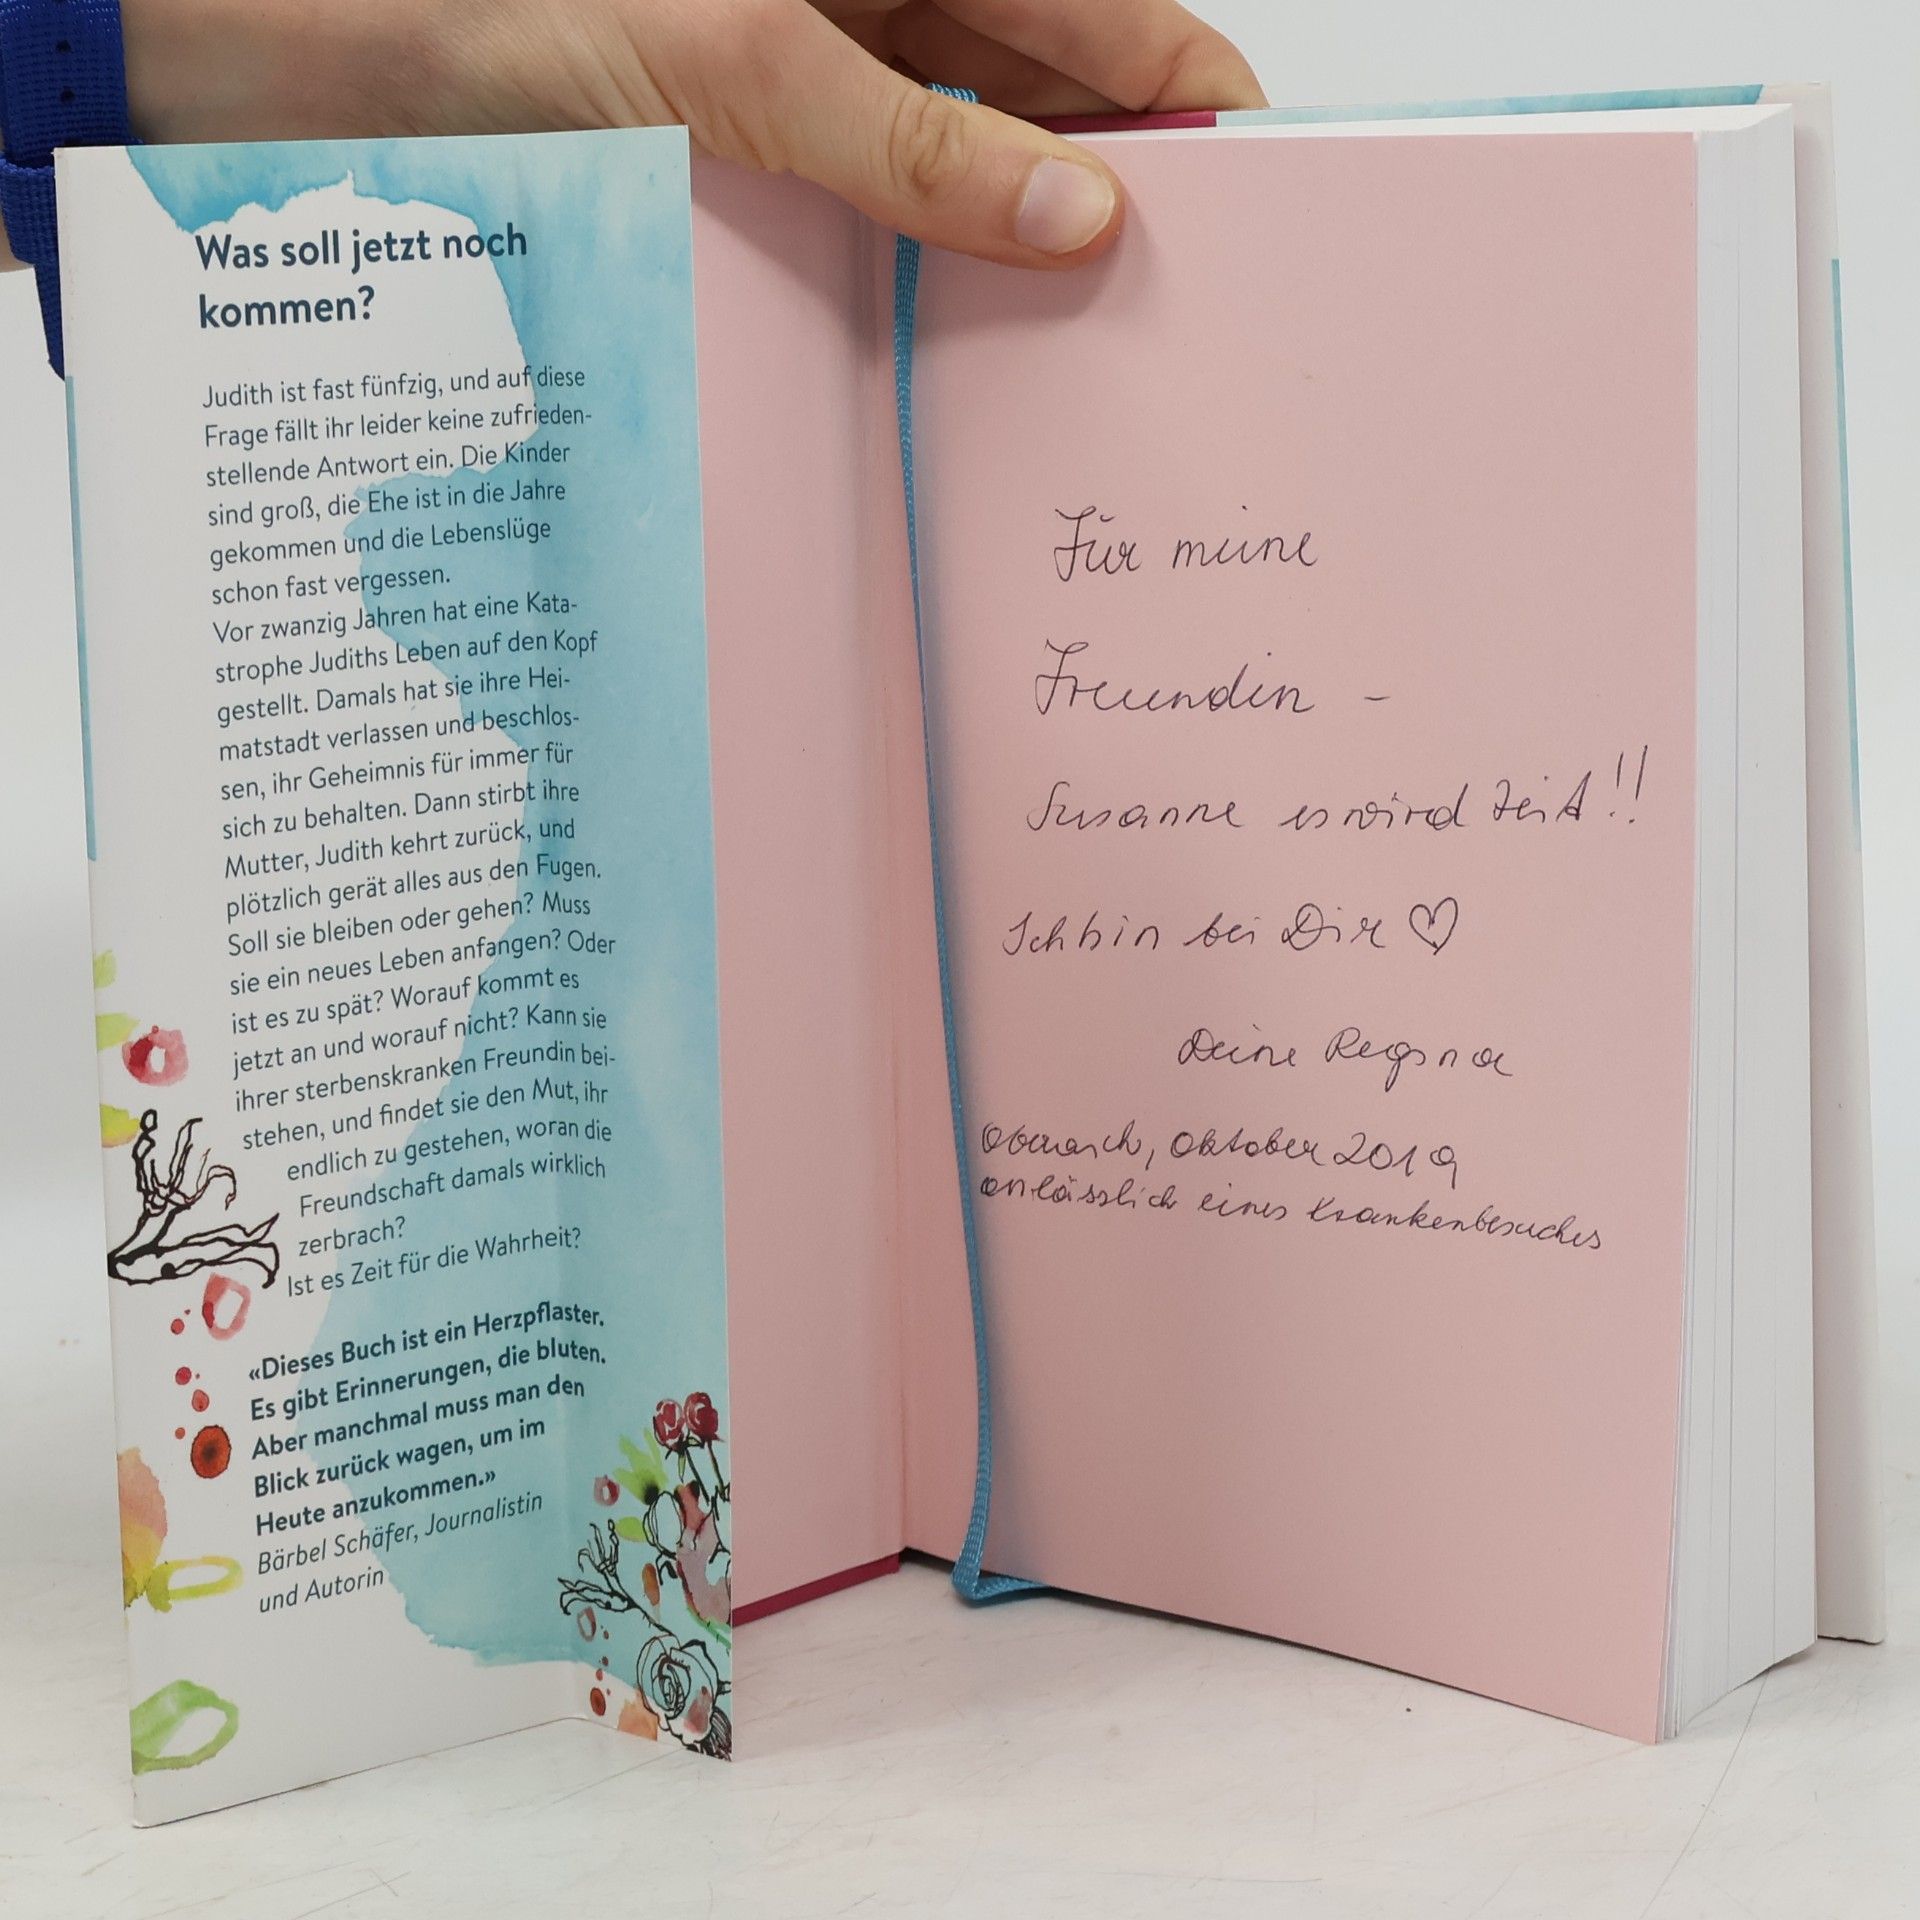 Was soll jetzt noch
kommen?
Judith ist fast fünfzig, und auf diese
Frage fällt ihr leider keine zufrieden-
stellende Antwort ein. Die Kinder
sind groß, die Ehe ist in die Jahre
gekommen und die Lebenslüge
schon fast vergessen.
Vor zwanzig Jahren hat eine Kata-
strophe Judiths Leben auf den Kopf
gestellt. Damals hat sie ihre Hei-
matstadt verlassen und beschlos-
sen, ihr Geheimnis für immer für
sich zu behalten. Dann stirbt ihre
Mutter, Judith kehrt zurück, und
plötzlich gerät alles aus den Fugen.
Soll sie bleiben oder gehen? Muss
sie ein neues Leben anfangen? Oder
ist es zu spät? Worauf kommt es
jetzt an und worauf nicht? Kann sie
ihrer sterbenskranken Freundin bei-
stehen, und findet sie den Mut, ihr
endlich zu gestehen, woran die
Freundschaft damals wirklich
zerbrach?
Ist es Zeit für die Wahrheit?
«Dieses Buch ist ein Herzpflaster.
Es gibt Erinnerungen, die bluten.
Aber manchmal muss man den
Blick zurück wagen, um im
Heute anzukommen.»
Bärbel Schäfer, Journalistin
und Autorin
Für meine
Freundin –
Susanne es wird Zeit!!
Ich bin bei Dir ♡
Deine Regina
Oktober 2019
anlässlich eines Krankenbesuches